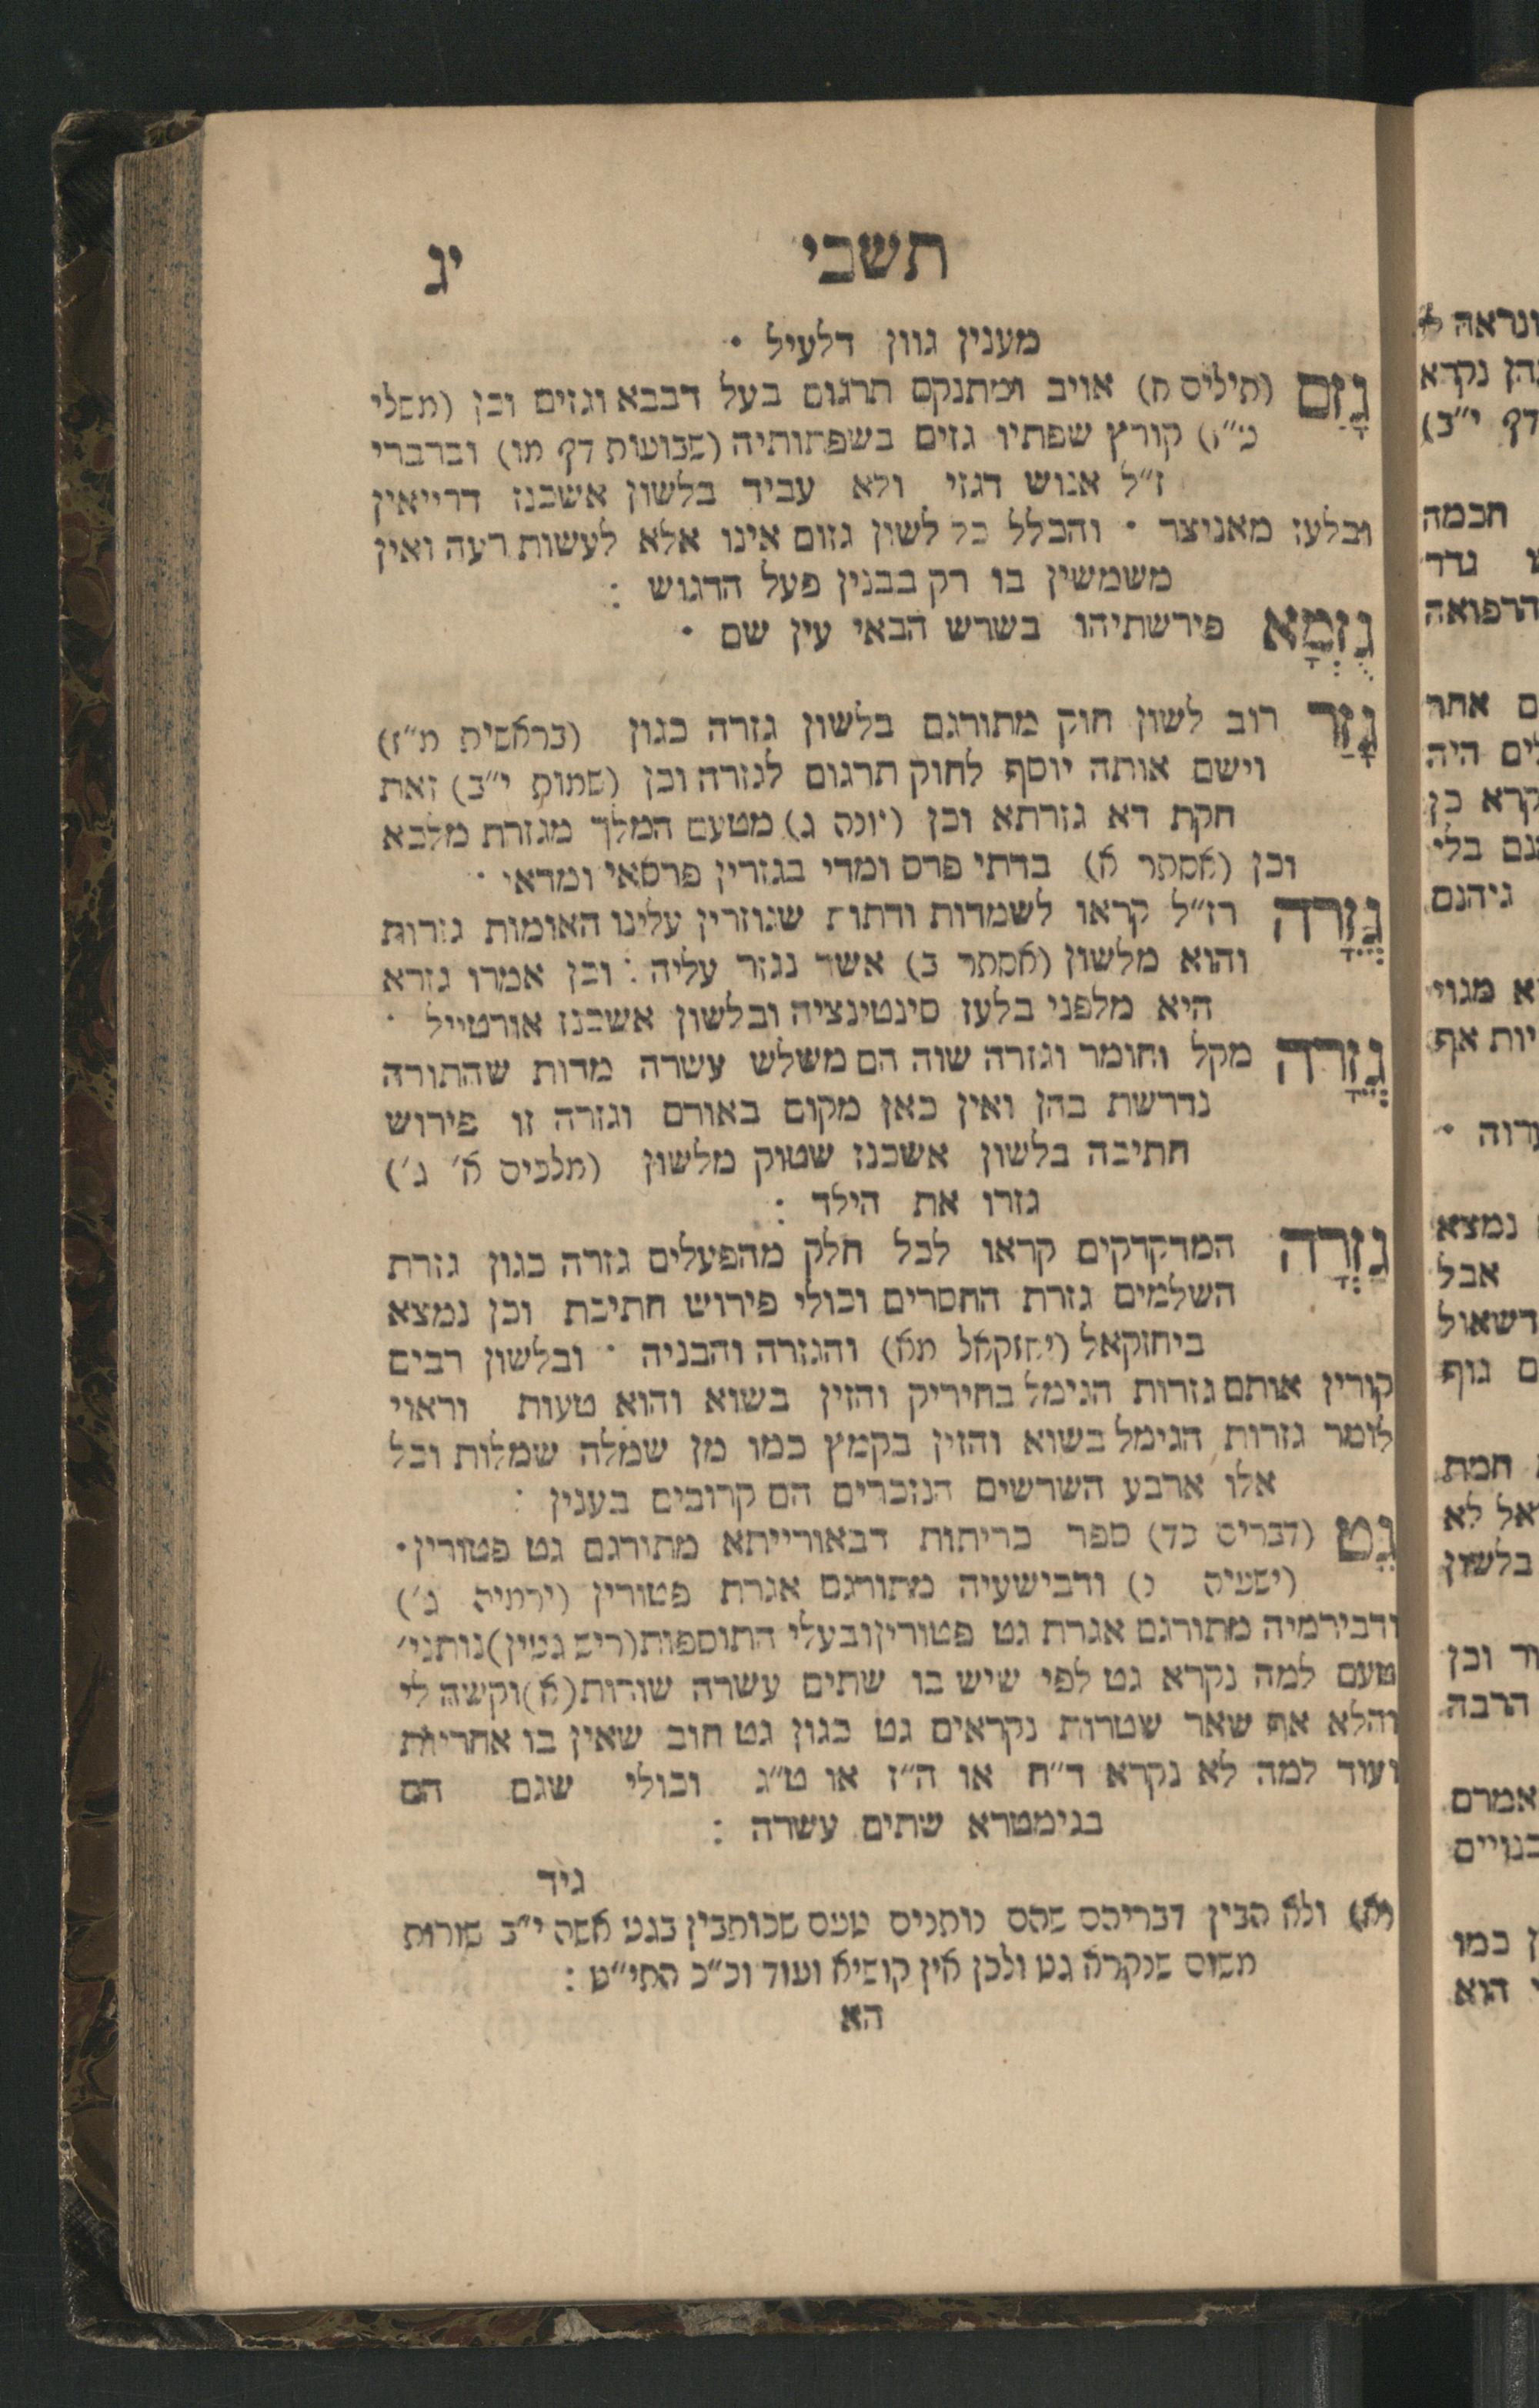 תשבי
יג
מענין גוון דלעיל •
גָזַם (תילים ח) אויב ומתנקם תרגום בעל דבבא וגזים וכן (משלי
קורץ שפתיו גזים בשפתותיה (שבועות דף מו) ובדברי
ז״ל אנוש דגזי ולא עביד בלשון אשכנז דרייאין
ובלעז מאניצר • והכלל כל לשון גזום אינו אלא לעשות רעה ואין
משמשין בו רק בבנין פעל הדגוש :
גֻזְמָא פירשתיהו בשרש הבאי עין שם •
גָזַר רוב לשון חוק מתורגם בלשון גזרה כגון (בראשית מ״ז)
וישם אותה יוסף לחוק תרגום לגזרה וכן (שמות י״ב) זאת
חקת דא גזרתא וכן (יונה ג) מטעם המלך מגזרת מלכא
וכן (אסתר א) בדתי פרס ומדי בגזרין פרסאי ומדאי •
גְזֵרָה רז״ל קראו לשמדות ודתות שגוזרין עלינו האומות גזרות
והוא מלשון (אסתר ב) אשר נגזר עליה : וכן אמרו גזרא
היא מלפני בלעז סינטינציה ובלשון אשכנז אורטייל •
גְזֵרָה מקל וחומר וגזרה שוה הם משלש עשרה מדות שהתורה
נדרשת בהן ואין כאן מקום באורם וגזרה זו פירוש
חתיכה בלשון אשכנז שטוק מלשון (מלכים א׳ ג׳)
גזרו את הילד :
גִזְרָה המדקדקים קראו לכל חלק מהפעלים גזרה כגון גזרת
השלמים גזרת החסרים וכולי פירוש חתיכת וכן נמצא
ביחזקאל (יחזקאל מא) והגזרה והבניה • ובלשון רבים
קורין אותם גזרות הגימל בחיריק והזין בשוא והוא טעות וראוי
לומר גזרות הגימל בשוא והזין בקמץ כמו מן שמלה שמלות וכל
אלו ארבע השרשים הנזכרים הם קרובים בענין :
גֵט (דברים כד) ספר כריתות דבאורייתא מתורגם גט פטורין•
(ישעיה נ) ודבישעיה מתורגם אגרת פטורין (ירמיה ג׳)
ודבירמיה מתורגם אגרת גט פטורין ובעלי התוספות (ריש גטין) נותני׳
טעם למה נקרא גט לפי שיש בו שתים עשרה שורות (א) וקשה לי
והלא אף שאר שטרות נקראים גט כגון גט חוב שאין בו אחריות
ועוד למה לא נקרא ד״ח או ה״ז או ט״ג וכולי שגם הם
בגימטרא שתים עשרה :
גיד
(א) ולא הבין דבריהם שהם נותנים טעם שכותבין בגט אשה י״ב שורות
משום שנקרא גט ולכן אין קושיא ועוד וכ״כ התי״ט :
הא